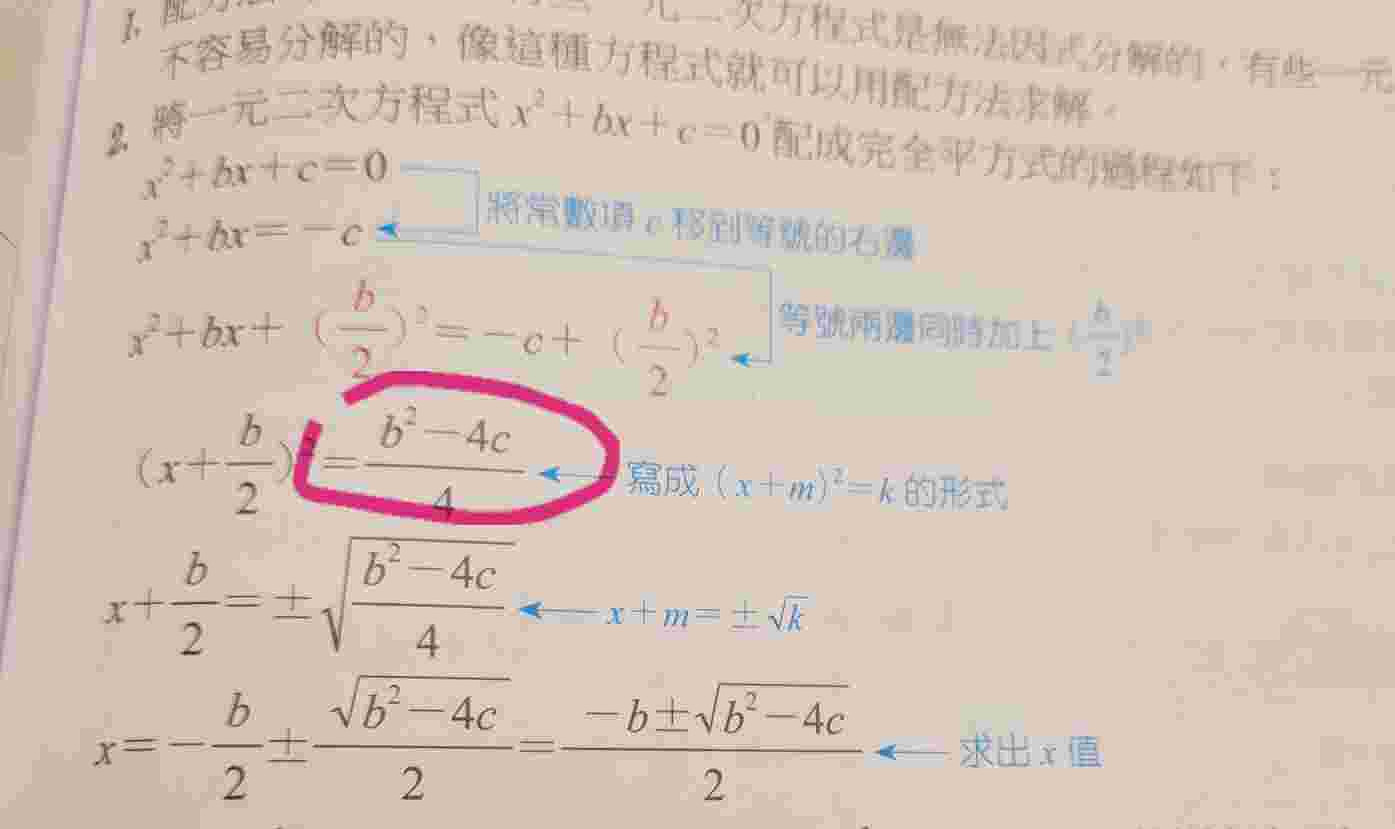 1. 配方法 一元二次方程式是無法因式分解的，有些一元
不容易分解的，像這種方程式就可以用配方法求解。
2. 將一元二次方程式 x²+bx+c=0 配成完全平方式的過程如下：
x²+bx+c=0
x²+bx=-c ← 將常數項 c 移到等號的右邊
x²+bx+(b/2)²=-c+(b/2)² ← 等號兩邊同時加上 (b/2)²
(x+b/2)²=(b²-4c)/4 ← 寫成 (x+m)²=k 的形式
x+b/2=±√((b²-4c)/4) ← x+m=±√k
x=-b/2±√(b²-4c)/2=(-b±√(b²-4c))/2 ← 求出 x 值